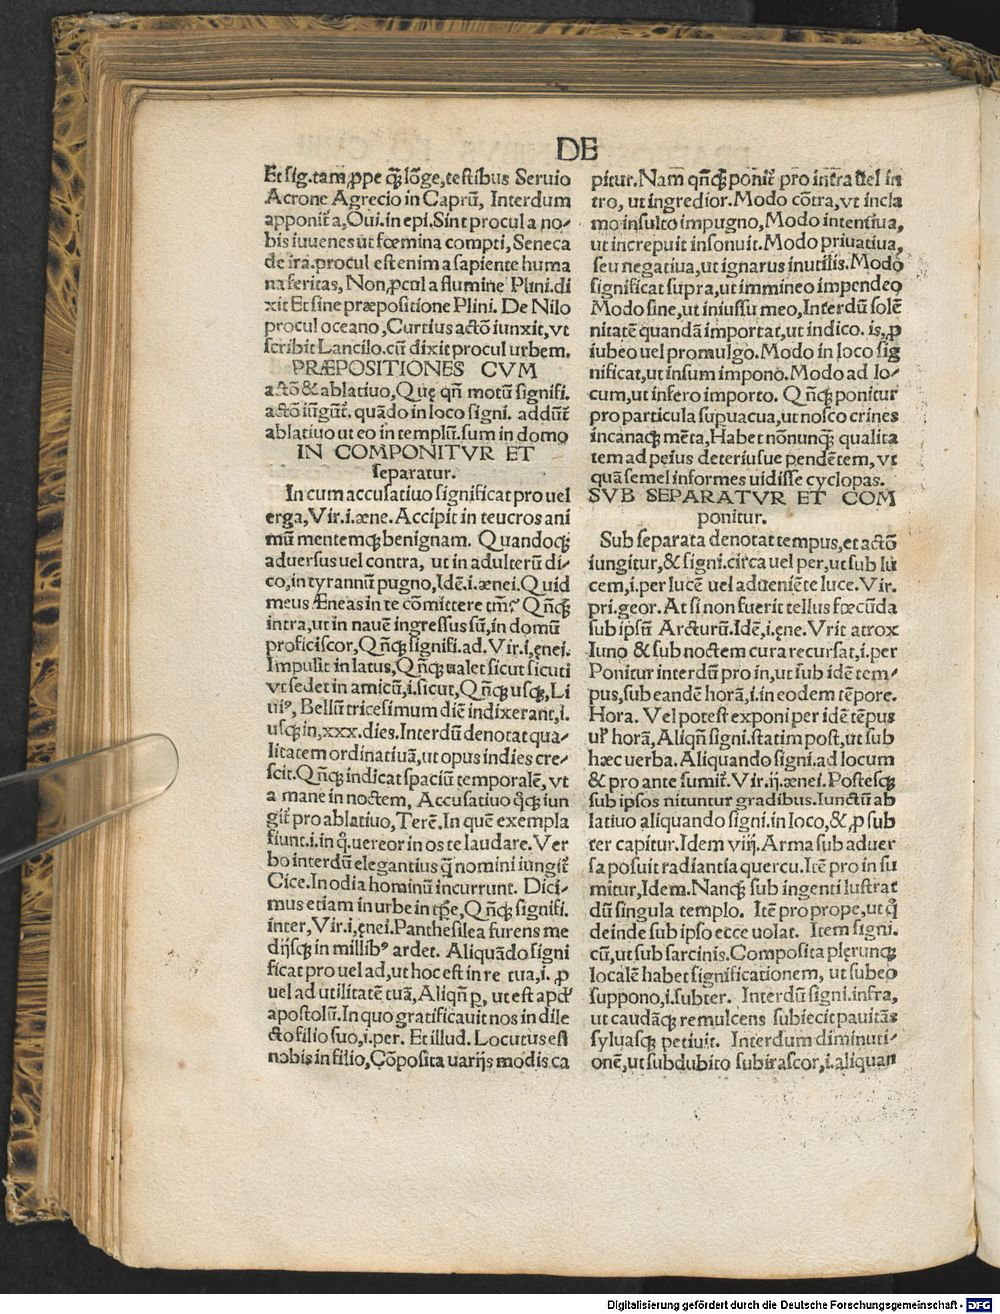 DE
Et sig. tam ꝓpe qꝫ̃ lõge, testibus Seruio
Acrone Agrecio in Caprũ, Interdum
apponit᷑ a, Oui. in epi. Sint procul a no-
bis iuuenes ut fœmina compti, Seneca
de ira. procul est enim a sapiente huma
na feritas, Non ꝓcul a flumine Plini. di
xit Et sine præpositione Plini. De Nilo
procul oceano, Curtius actõ iunxit, vt
scribit Lancilo. cũ dixit procul urbem.
PRÆPOSITIONES CVM
actõ & ablatiuo, Quę qñ motũ signifi.
actõ iũgũt᷑. quãdo in loco signi. addũt᷑
ablatiuo ut eo in templũ. sum in domo
IN COMPONITVR ET
separatur.
In cum accusatiuo significat pro uel
erga, Vir. i. æne. Accipit in teucros ani
mũ mentemqꝫ benignam. Quandoqꝫ
aduersus uel contra, ut in adulterũ di-
co, in tyrannũ pugno, Idẽ. i. ænei. Quid
meus Æneas in te cõmittere tm̃? Qñqꝫ
intra, ut in nauẽ ingressus sũ, in domũ
proficiscor, Qñqꝫ signifi. ad. Vir. i. ęnei.
Impulit in latus, Qñqꝫ ualet sicut sicuti
vt sedet in amicũ, i. sicut, Qñqꝫ usqꝫ, Li
uiꝰ, Bellũ tricesimum diẽ indixerant, i.
usqꝫ in, xxx. dies. Interdũ denotat qua-
litatem ordinatiuã, ut opus indies cre-
scit. Qñqꝫ indicat spaciũ temporalẽ, vt
a mane in noctem, Accusatiuo q̊qꝫ iun
git᷑ pro ablatiuo, Terẽ. In quẽ exempla
fiunt. i. in q̊. uereor in os te laudare. Ver
bo interdũ elegantius q̃ nomini iungit᷑
Cice. In odia hominũ incurrunt. Dici-
mus etiam in urbe in tꝑe, Qñqꝫ signifi.
inter, Vir. i, ęnei. Panthesilea furens me
dijsqꝫ in millibꝰ ardet. Aliquãdo signi
ficat pro uel ad, ut hoc est in re tua, i. ꝓ
uel ad utilitatẽ tuã, Aliqñ ꝑ, ut est apđ
apostolũ. In quo gratificauit nos in dile
cto filio suo, i. per. Et illud. Locutus est
nobis in filio, Cõposita uarijs modis ca
pitur. Nam qñqꝫ ponit᷑ pro intra uel in
tro, ut ingredior. Modo cõtra, vt incla
mo insulto impugno, Modo intentiua,
ut increpuit insonuit. Modo priuatiua,
seu negatiua, ut ignarus inutilis. Modo
significat supra, ut immineo impendeo
Modo sine, ut iniussu meo, Interdũ solẽ
nitatẽ quandã importat, ut indico. is, ꝓ
iubeo uel promulgo. Modo in loco sig
nificat, ut insum impono. Modo ad lo-
cum, ut infero importo. Qñqꝫ ponitur
pro particula supuacua, ut nosco crines
incanaqꝫ mẽta, Habet nõnunqꝫ̃ qualita
tem ad peius deteriusue pendẽtem, vt
quã semel informes uidisse cyclopas.
SVB SEPARATVR ET COM
ponitur.
Sub separata denotat tempus, et actõ
iungitur, & signi. circa uel per, ut sub lu
cem, i. per lucẽ uel adueniẽte luce. Vir.
pri. geor. At si non fuerit tellus fœcũda
sub ipsũ Arcturũ. Idẽ, i. ęne. Vrit atrox
Iuno & sub noctem cura recursat, i. per
Ponitur interdũ pro in, ut sub idẽ tem-
pus, sub eandẽ horã, i. in eodem tẽpore.
Hora. Vel potest exponi per idẽ tẽpus
uł horã, Aliqñ signi. statim post, ut sub
hæc uerba. Aliquando signi. ad locum
& pro ante sumit᷑. Vir. ij. ænei. Postesqꝫ
sub ipsos nituntur gradibus. Iunctũ ab
latiuo aliquando signi. in loco, & ꝓ sub
ter capitur. Idem viij. Arma sub aduer
sa posuit radiantia quercu. Itẽ pro in su
mitur, Idem. Nanqꝫ sub ingenti lustrat
dũ singula templo. Itẽ pro prope, ut q̊
deinde sub ipso ecce uolat. Item signi.
cũ, ut sub sarcinis. Composita plęrunqꝫ
localẽ habet significationem, ut subeo
suppono, i. subter. Interdũ signi. infra,
ut caudãqꝫ remulcens subiecit pauitãs
syluasqꝫ petiuit. Interdum diminuti-
onẽ, ut subdubito subirascor, i. aliquan
Digitalisierung gefördert durch die Deutsche Forschungsgemeinschaft - DFG